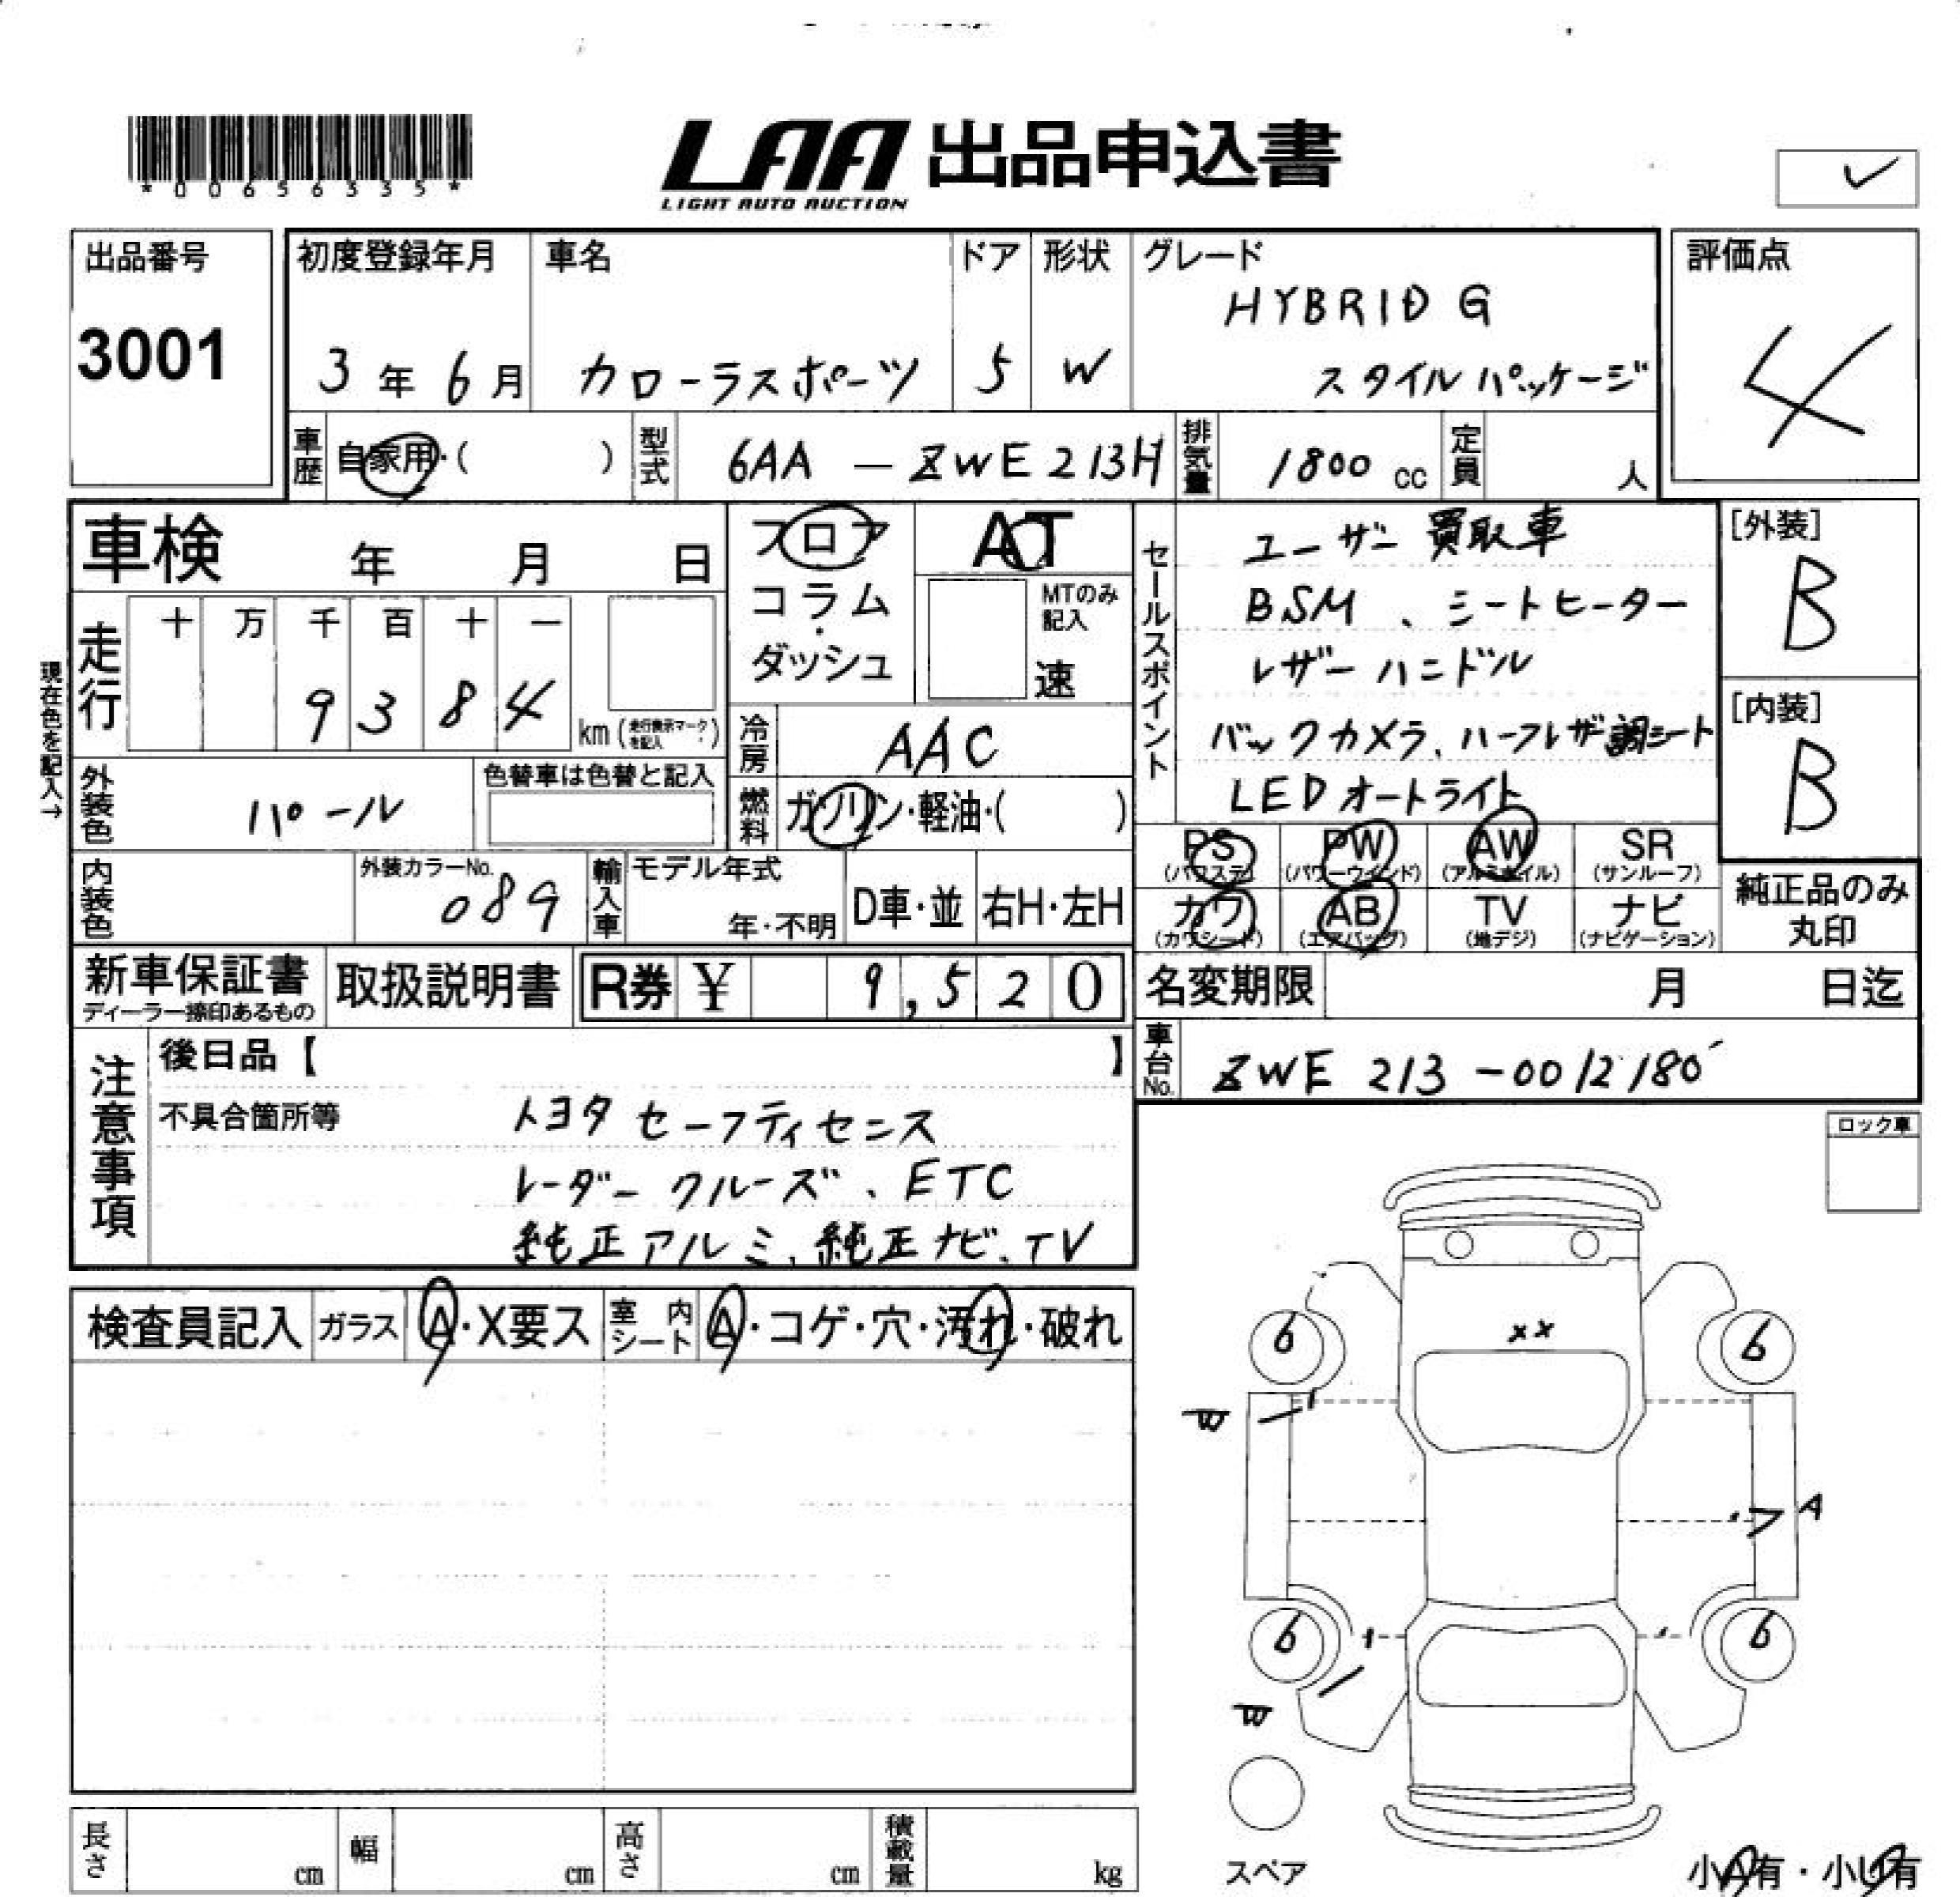 *00656335*
LAA 出品申込書
LIGHT AUTO AUCTION
出品番号
3001
初度登録年月
3年6月
車名
カローラスポーツ
ドア
5
形状
W
グレード
HYBRID G
スタイルパッケージ
評価点
4
車歴 自家用・( )
型式 6AA-ZWE213H
排気量 1800cc
定員 人
車検 年 月 日
フロア
コラム・
ダッシュ
AT
MTのみ記入
速
現在色を記入→
走行 十 万 千 百 十 一
9 3 8 4 km (走行表示マークを記入)
冷房 AAC
燃料 ガソリン・軽油・( )
外装色 パール
色替車は色替と記入
内装色
外装カラーNo. 089
輸入車 モデル年式
年・不明
D車・並
右H・左H
セールスポイント
ユーザー買取車
BSM、シートヒーター
レザーハンドル
バックカメラ、ハーフレザー調シート
LEDオートライト
[外装]
B
[内装]
B
PS (パワステ) PW (パワーウインド) AW (アルミホイル) SR (サンルーフ)
カワ (カワシート) AB (エアバッグ) TV (地デジ) ナビ (ナビゲーション)
純正品のみ丸印
新車保証書
ディーラー捺印あるもの
取扱説明書
R券 ¥ 9,520
名変期限 月 日迄
車台No. ZWE213-0012180
注意事項
後日品【 】
不具合箇所等
トヨタセーフティセンス
レーダークルーズ、ETC
純正アルミ、純正ナビ、TV
ロック車
検査員記入 ガラス A・X要ス 室内シート A・コゲ・穴・汚れ・破れ
XX
6 6
W
A
6 6
W
スペア
長さ cm 幅 cm 高さ cm 積載量 kg
小A有・小U有